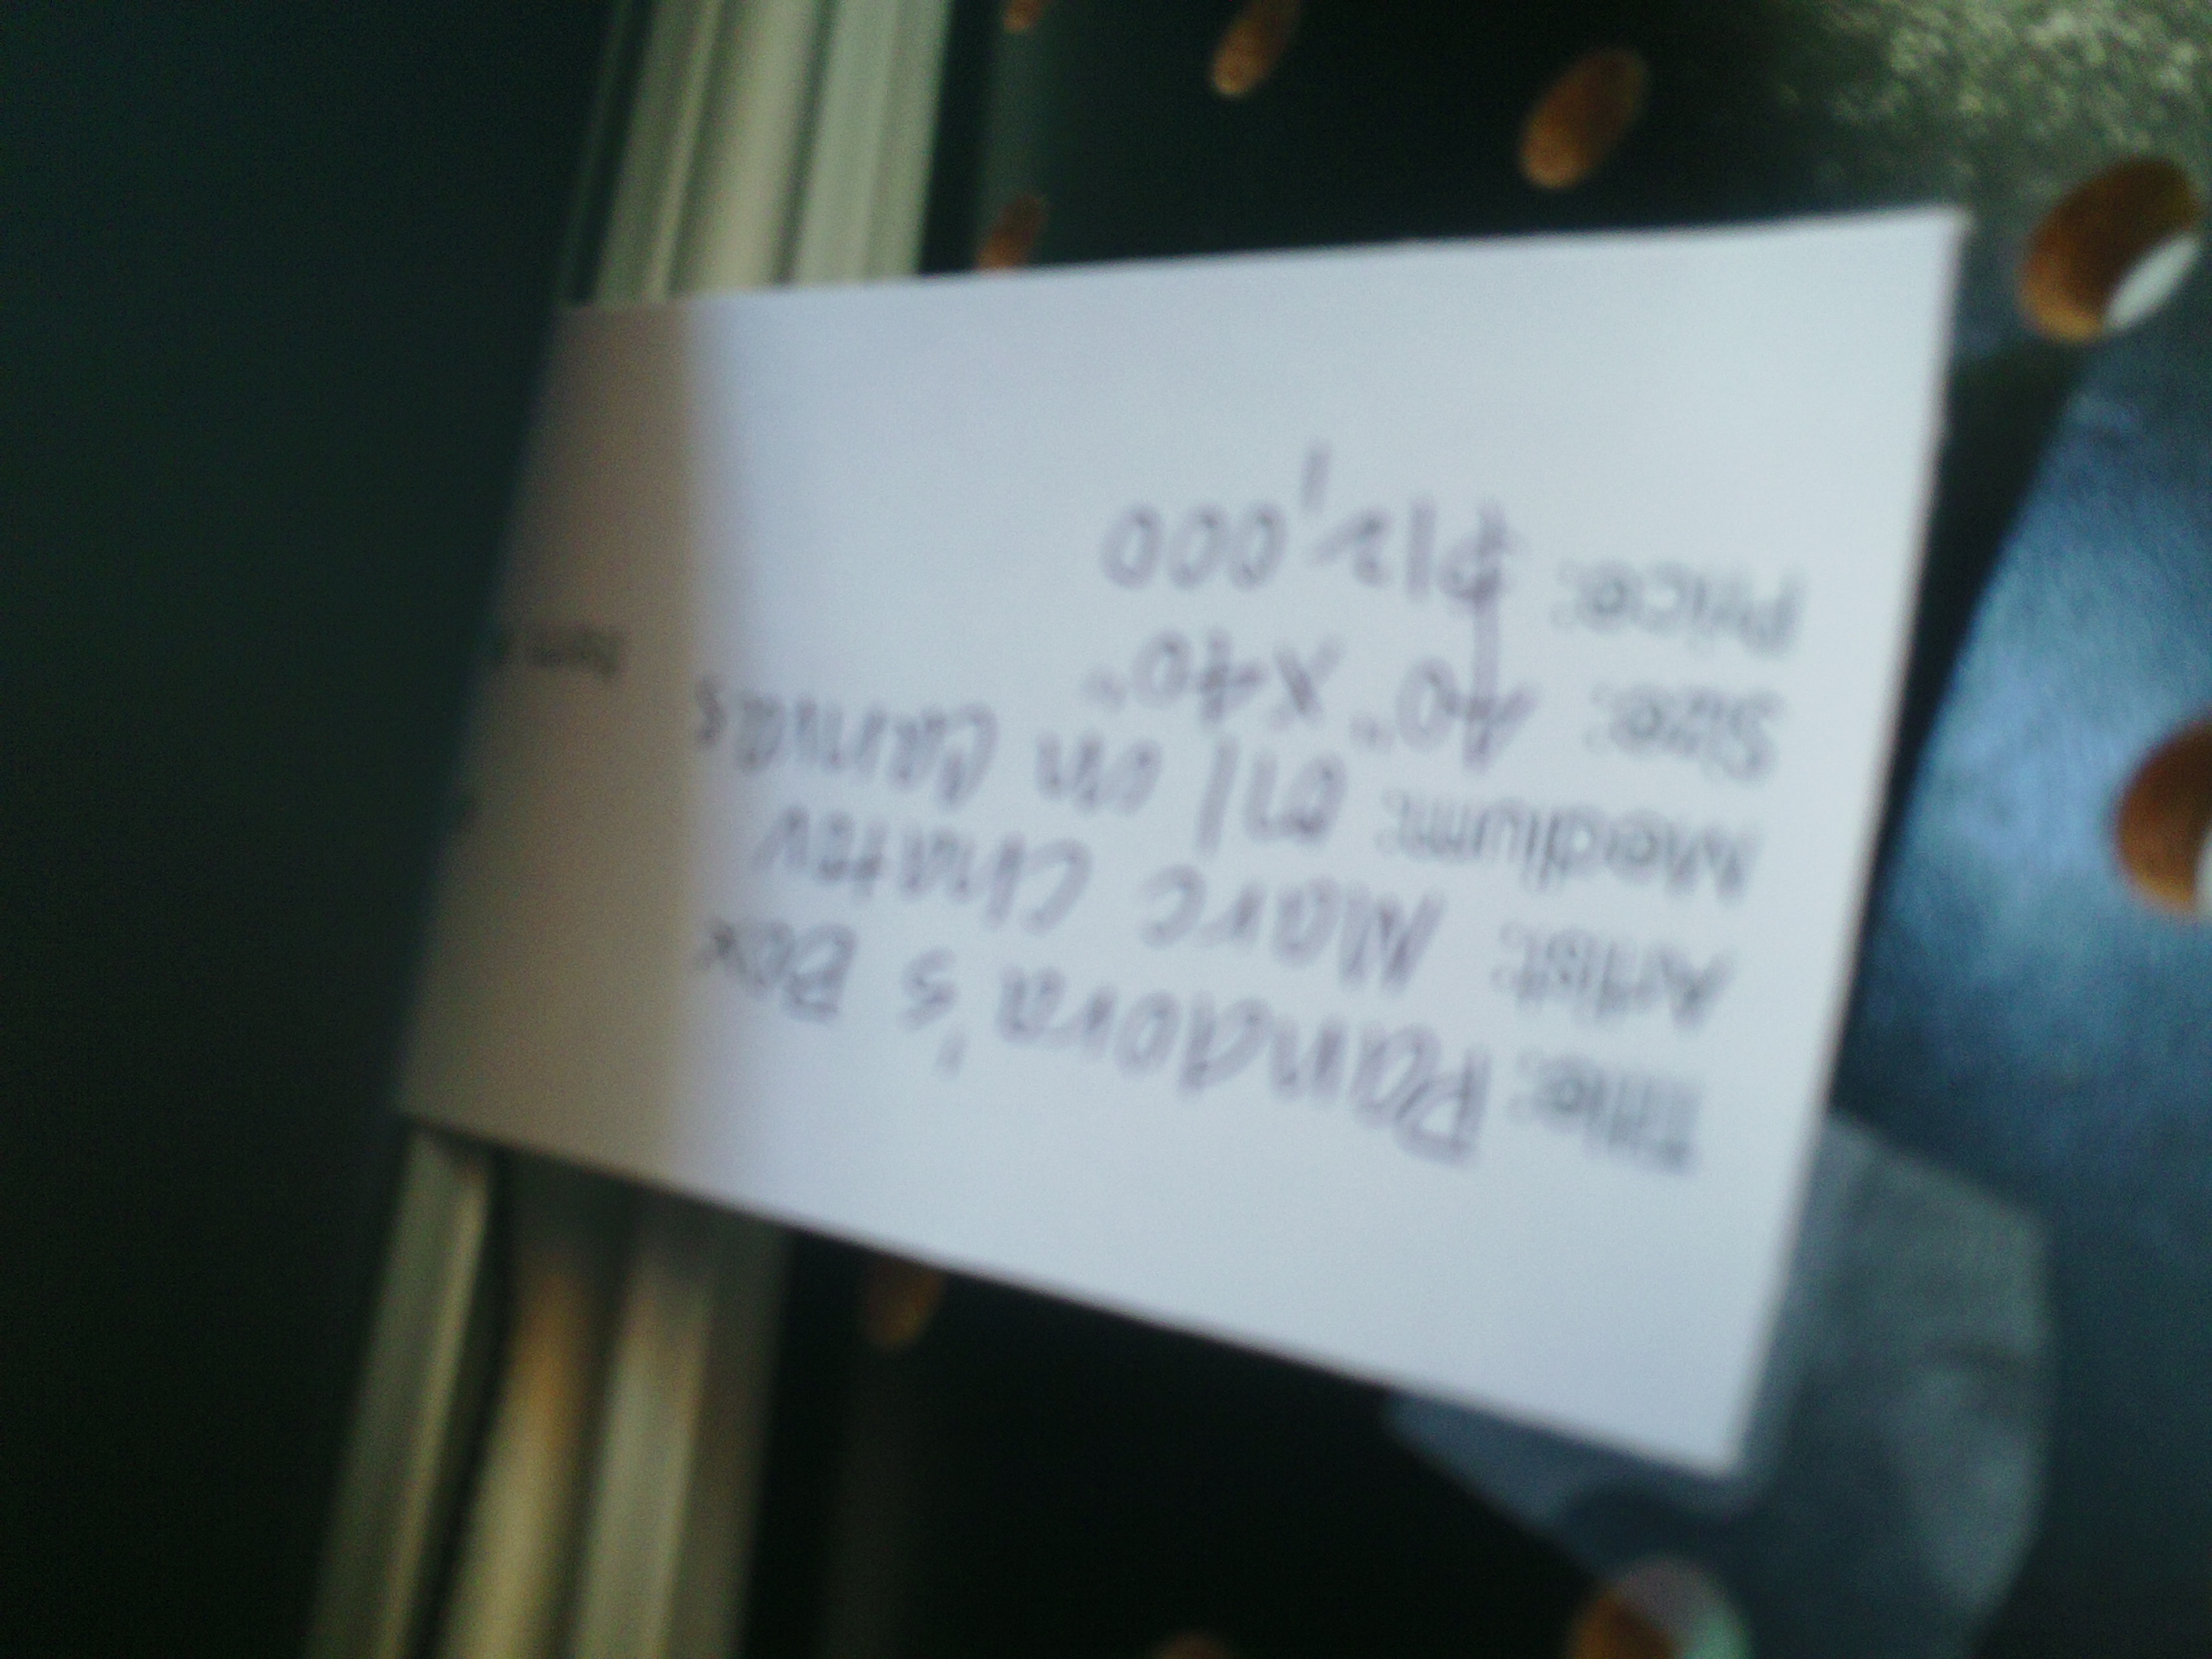 Title: Pandora's Box
Artist: Marc
Medium: Oil on Canvas
Size: 40" x 40"
Price: $12,000